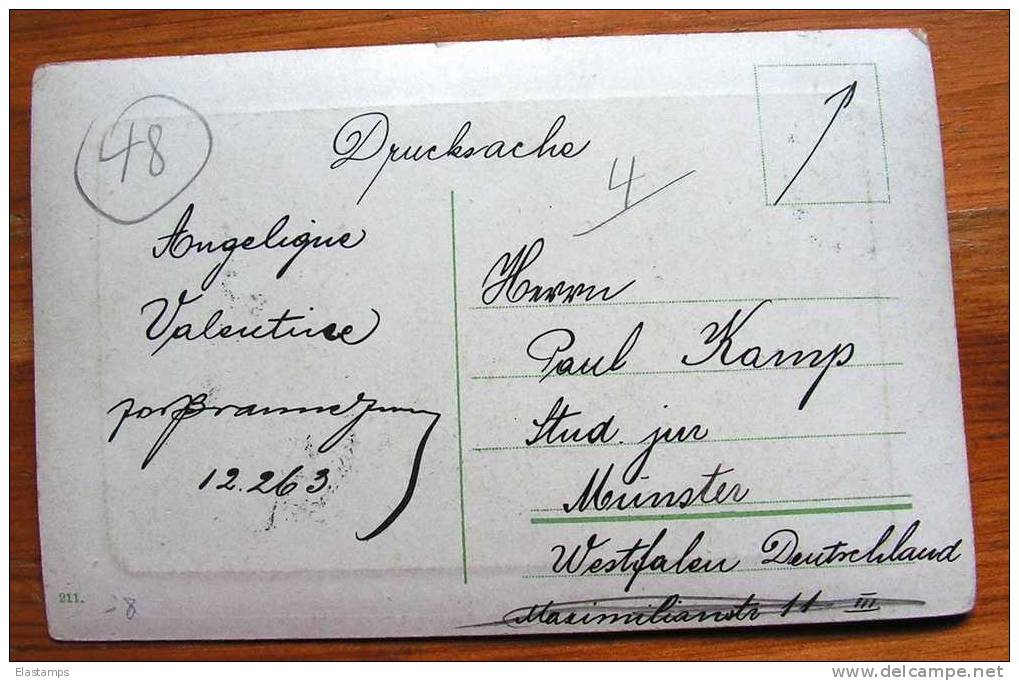 48
Drucksache
4
Angelique
Valentine
12.263
Herrn
Paul Kamp
Stud. jur
Münster
Westfalen Deutschland
Maximilianstr 11 III
211.
-8
Elastamps
www.delcampe.net